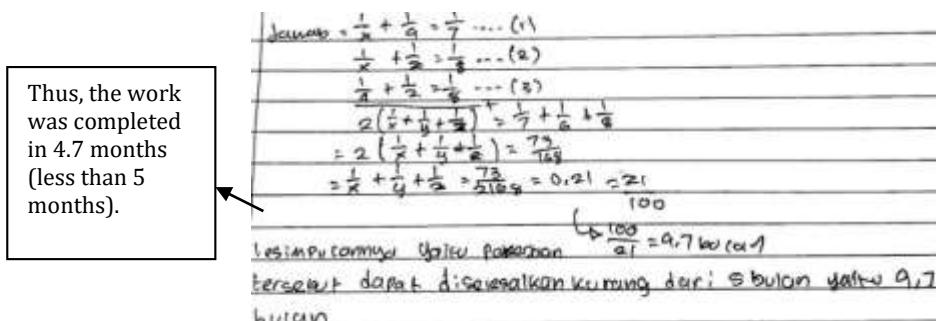 Thus, the work
was completed
in 4.7 months
(less than 5
months).
Jawab = 1/x + 1/y = 1/7 .... (1)
1/x + 1/z = 1/8 ... (2)
1/y + 1/z = 1/8 ... (3)
2(1/x + 1/y + 1/z) = 1/7 + 1/6 + 1/8
= 2(1/x + 1/y + 1/z) = 73/168
= 1/x + 1/y + 1/z = 73 = 0,21 = 21/100
100/21 = 4,7 bulan
kesimpulannya yaitu
tersebut dapat diselesaikan kurang dari 5 bulan yaitu 4,7
bulan